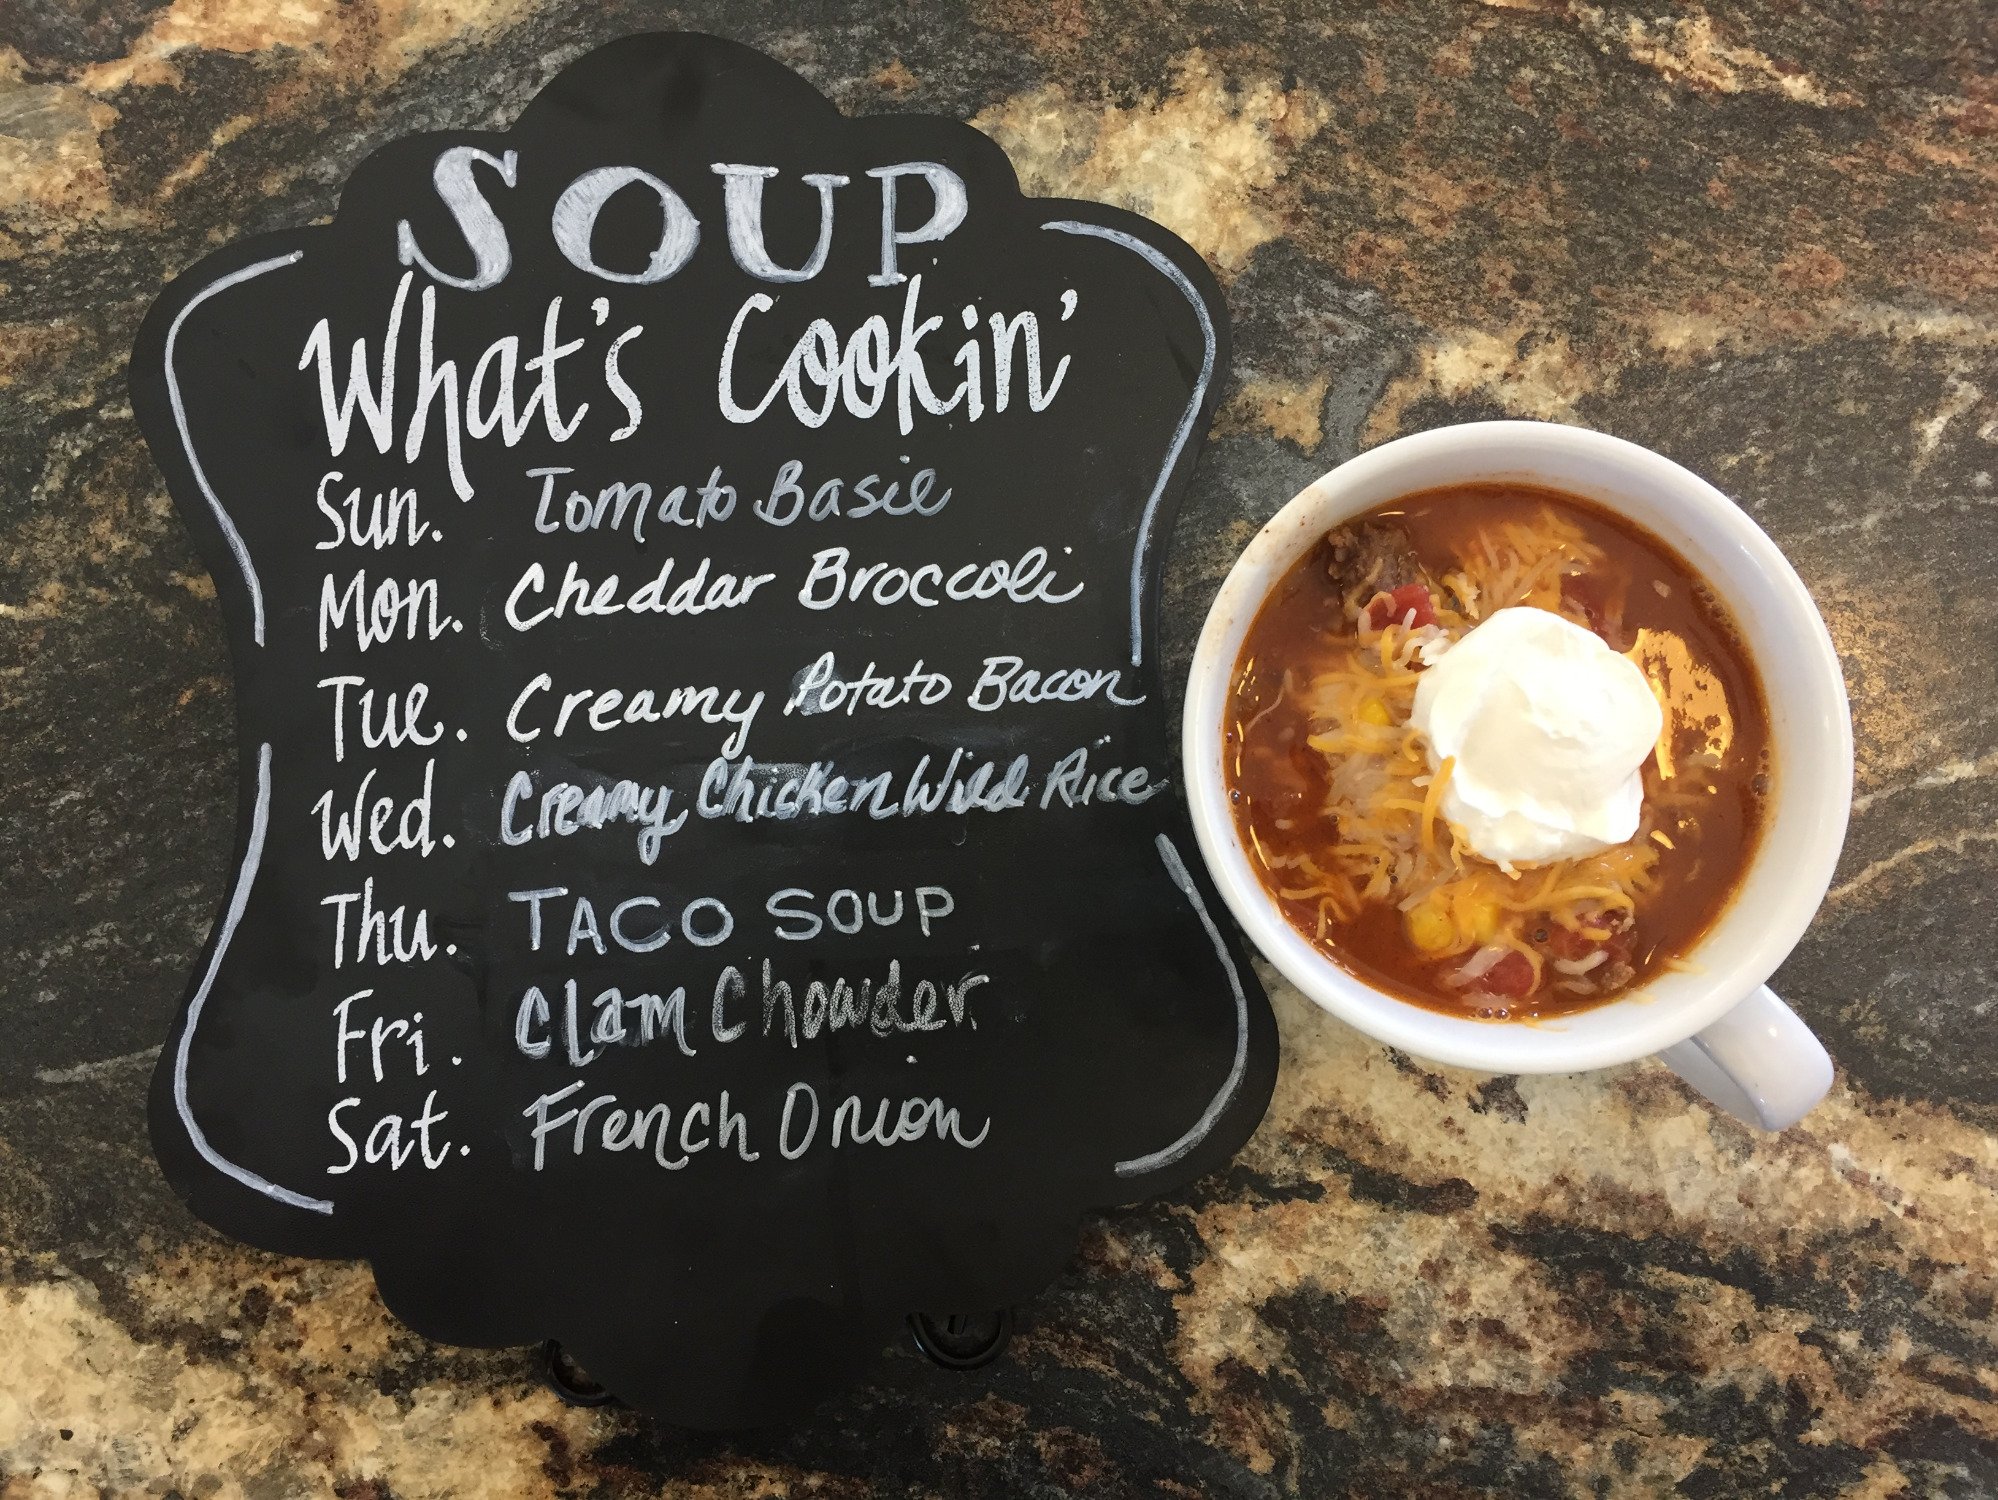 SOUP
What's Cookin'
Sun. Tomato Basil
Mon. Cheddar Broccoli
Tue. Creamy Potato Bacon
Wed. Creamy Chicken Wild Rice
Thu. TACO SOUP
Fri. Clam Chowder
Sat. French Onion